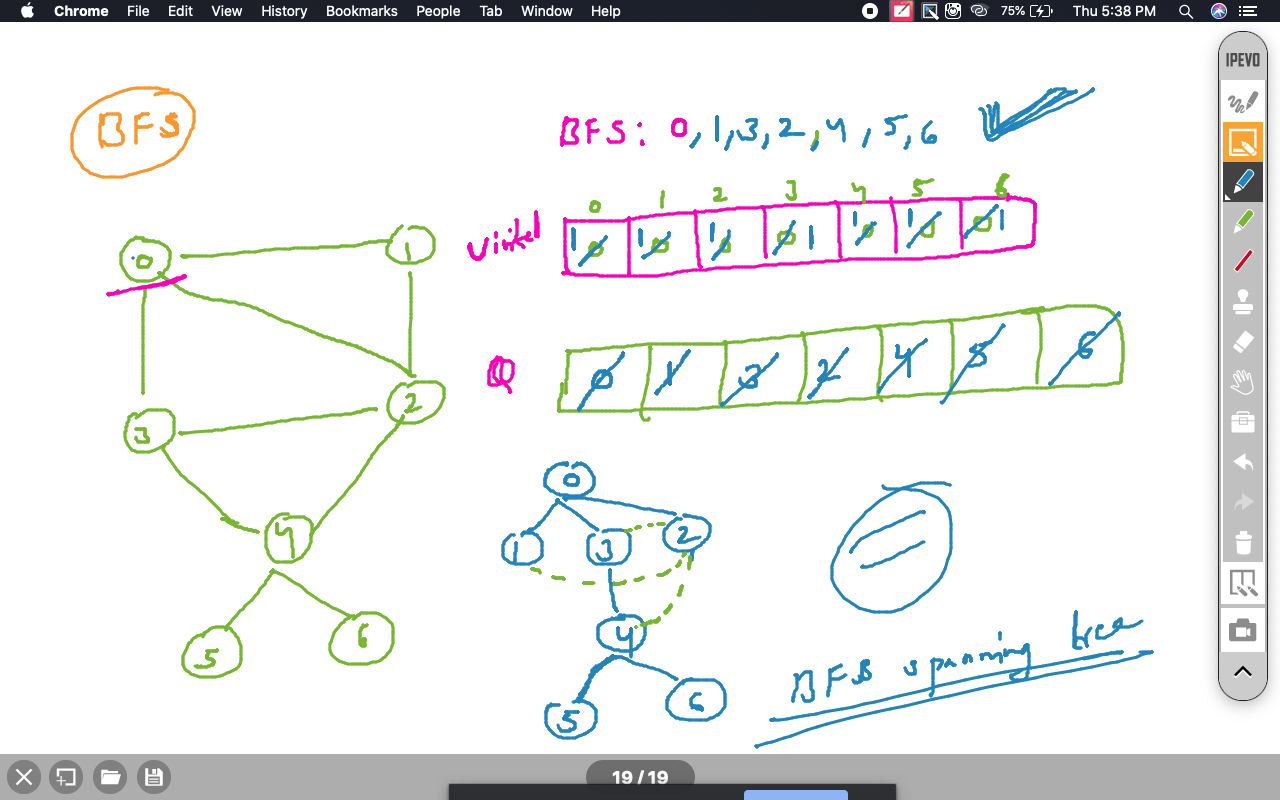 Chrome File Edit View History Bookmarks People Tab Window Help 75% Thu 5:38 PM
IPEVO
BFS
BFS: 0, 1, 3, 2, 4, 5, 6
0 1 2 3 4 5 6
Visited 1 0 1 0 1 0 0 1 1 0 1 0 0 1
Q 0 1 3 2 4 5 6
0 1
3 2
4
5 6
0
1 3 2
4
5 6
BFS spanning tree
19 / 19